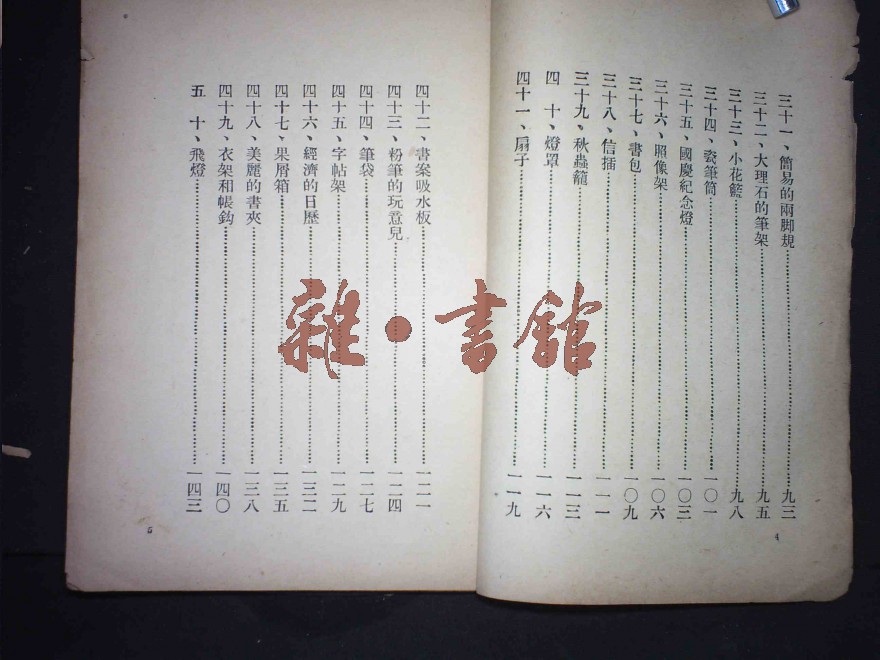 三十一、簡易的兩脚規……九三
三十二、大理石的筆架……九五
三十三、小花籃……九八
三十四、瓷筆筒……一〇一
三十五、國慶紀念燈……一〇三
三十六、照像架……一〇六
三十七、書包……一〇九
三十八、信插……一一一
三十九、秋蟲籠……一一三
四十、燈罩……一一六
四十一、扇子……一一九
4
四十二、書案吸水板……一二一
四十三、粉筆的玩意兒……一二四
四十四、筆袋……一二七
四十五、字帖架……一二九
四十六、經濟的日歷……一三二
四十七、果屑箱……一三五
四十八、美麗的書夾……一三八
四十九、衣架和帳鈎……一四〇
五十、飛燈……一四三
5
雜·書館